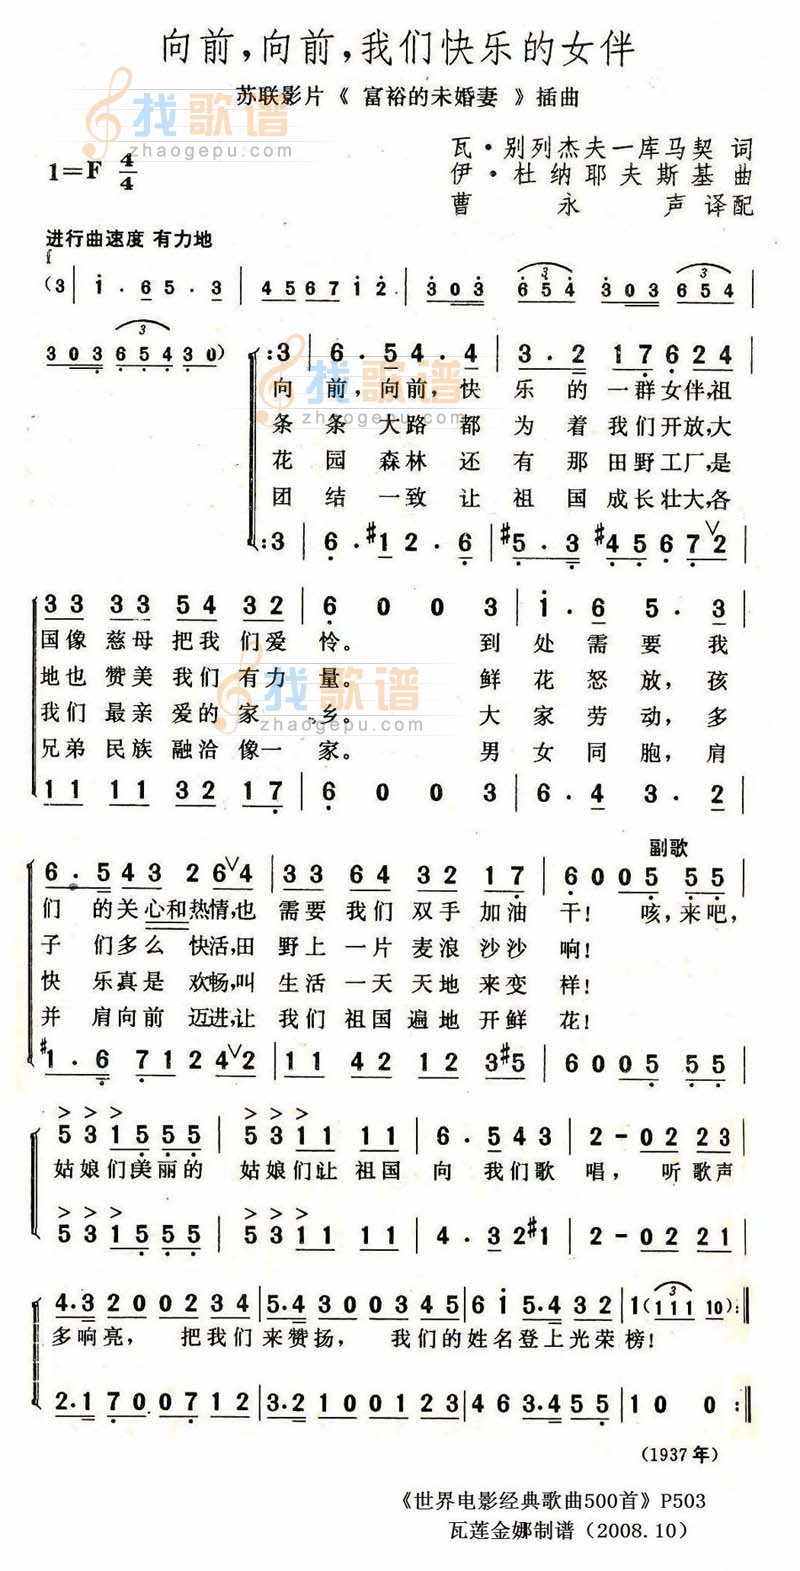 向前，向前，我们快乐的女伴
苏联影片《 富裕的未婚妻 》插曲
找歌谱
zhaogepu.com
瓦·别列杰夫一库马契 词
1=F 4/4
伊·杜纳耶夫斯基 曲
曹永声 译配
进行曲速度 有力地
(3 | i . 6 5 . 3 | 4 5 6 7 i 2 . | 3 0 3 6 5 4 3 0 3 6 5 4 |
3 0 3 6 5 4 3 0)
:3 | 6 . 5 4 . 4 | 3 . 2 1 7 6 2 4 |
向前，向前，快乐的一群女伴，祖
条条大路都为着我们开放，大
花园森林还有那田野工厂，是
团结一致让祖国成长壮大，各
:3 | 6 . #1 2 . 6 | #5 . 3 #4 5 6 7 2 |
3 3 3 3 5 4 3 2 | 6 0 0 3 | i . 6 5 . 3 |
国像慈母把我们爱怜。到处需要我
地也赞美我们有力量。鲜花怒放，孩
我们最亲爱的家乡。大家劳动，多
兄弟民族融洽像一家。男女同胞，肩
1 1 1 1 3 2 1 7 | 6 0 0 3 | 6 . 4 3 . 2 |
副歌
6 . 5 4 3 2 6 4 | 3 3 6 4 3 2 1 7 | 6 0 0 5 5 5 |
们的关心和热情，也需要我们双手加油干！咳，来吧，
子们多么快活，田野上一片麦浪沙沙响！
快乐真是欢畅，叫生活一天天地来变样！
并肩向前迈进，让我们祖国遍地开鲜花！
#1 . 6 7 1 2 4 2 | 1 1 4 2 1 2 3 #5 | 6 0 0 5 5 5 |
> > > > > >
5 3 1 5 5 5 | 5 3 1 1 1 1 | 6 . 5 4 3 | 2 - 0 2 2 3 |
姑娘们美丽的姑娘们让祖国向我们歌唱，听歌声
> > > > > >
5 3 1 5 5 5 | 5 3 1 1 1 1 | 4 . 3 2 #1 | 2 - 0 2 2 1 |
4 . 3 2 0 0 2 3 4 | 5 . 4 3 0 0 3 4 5 | 6 i 5 . 4 3 2 | 1 (1 1 1 1 0) :||
多响亮，把我们来赞扬，我们的姓名登上光荣榜！
2 . 1 7 0 0 7 1 2 | 3 . 2 1 0 0 1 2 3 | 4 6 3 . 4 5 5 | 1 0 0 :||
(1937 年)
《世界电影经典歌曲500首》P503
瓦莲金娜制谱（2008.10）